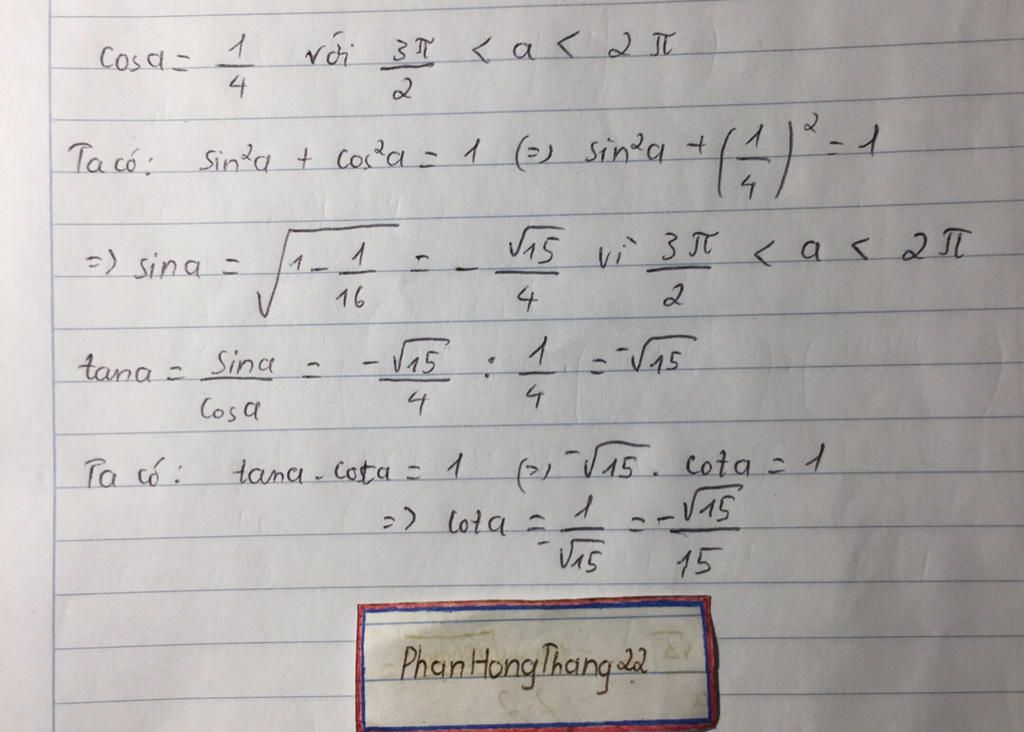 cosa = 1/4 với 3π/2 < a < 2π
Ta có: sin²a + cos²a = 1 (=) sin²a + (1/4)² = 1
=> sina = √(1 - 1/16) = - √15/4 vì 3π/2 < a < 2π
tana = sina/cosa = -√15/4 : 1/4 = -√15
Ta có: tana . cota = 1 (=) -√15 . cota = 1
=> cota = 1/-√15 = -√15/15
PhanHongThang22